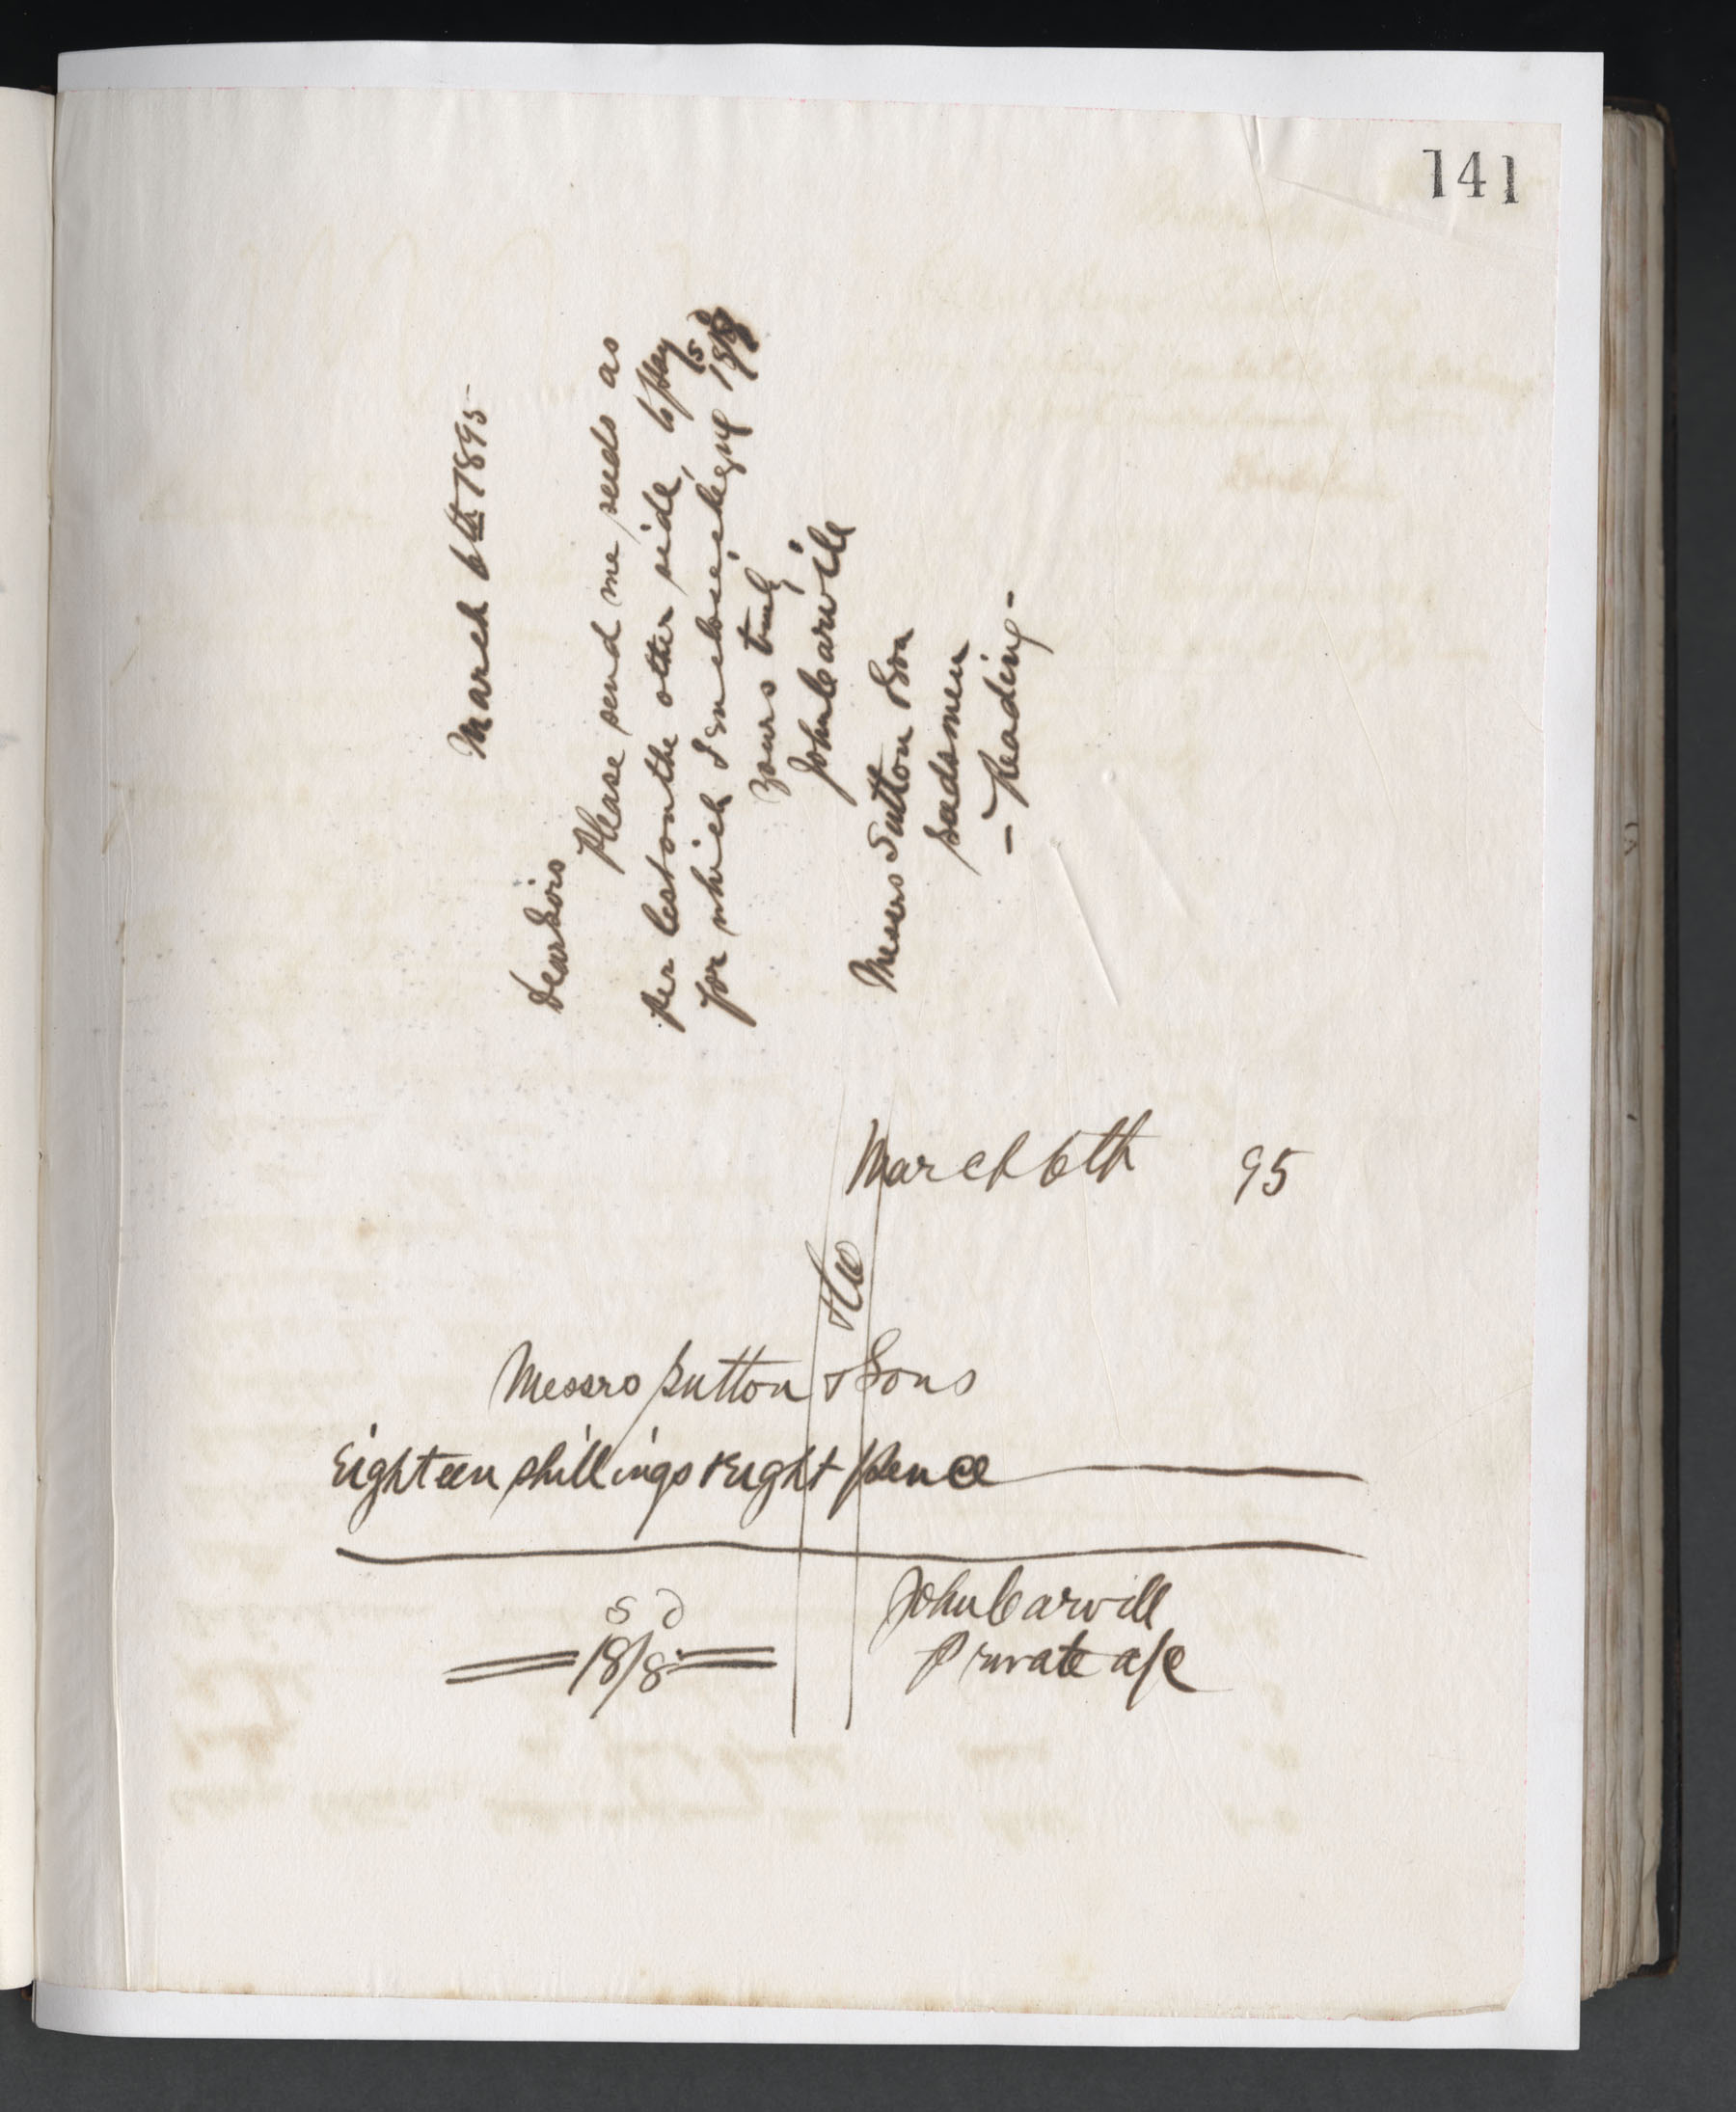 141
March 6th 1895
Dear Sirs
Please send me seeds as
per list on the other side, to pay
for which I enclose cheque 18s/8d
yours truly
John Carvill
Messrs Sutton & Son
Seedsmen
- Reading -
March 6th 95
& Co
Messrs Sutton & Sons
Eighteen shillings & Eight pence
s d
18/8
John Carvill
Private a/c